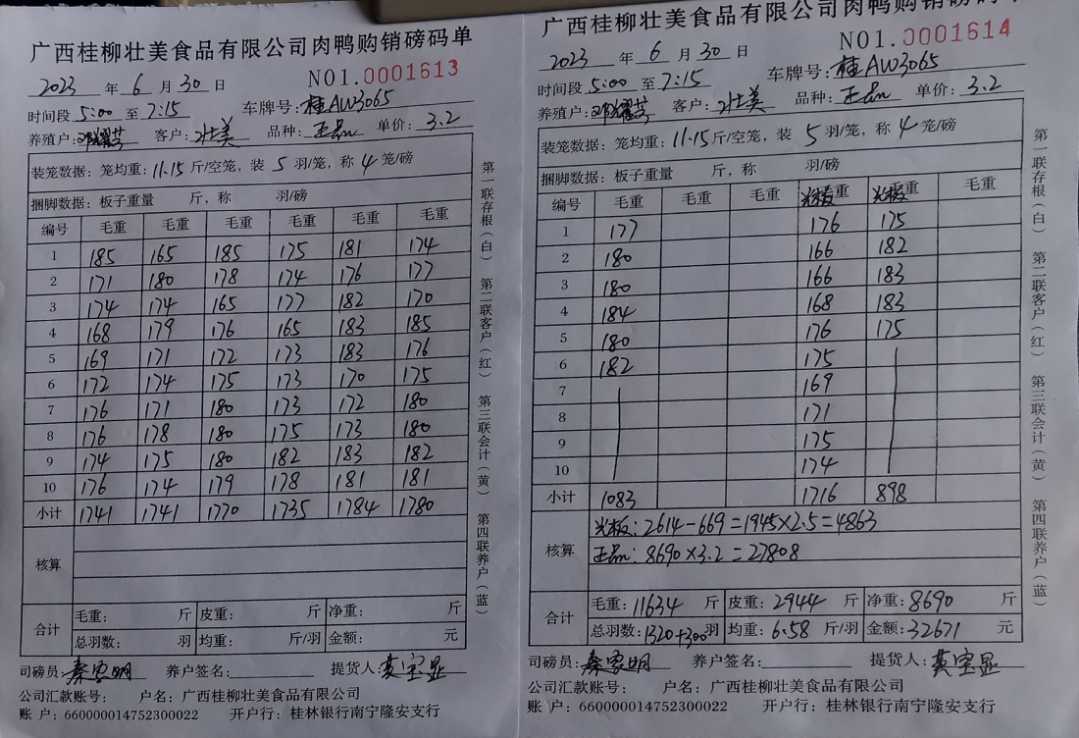 广西桂柳壮美食品有限公司肉鸭购销磅码单
2023 年 6 月 30 日 NO1.0001613
时间段 5:00 至 7:15 车牌号:桂AW3065
养殖户: 客户: 壮美 品种: 正品 单价: 3.2
装笼数据: 笼均重: 11.15 斤/空笼, 装 5 羽/笼, 称 4 笼/磅
捆脚数据: 板子重量 斤, 称 羽/磅
编号 毛重 毛重 毛重 毛重 毛重 毛重
1 185 165 185 175 181 174
2 171 180 178 174 176 177
3 174 174 165 177 182 170
4 168 179 176 165 183 185
5 169 171 172 173 183 176
6 172 174 175 173 170 175
7 176 171 180 173 172 180
8 176 178 180 175 173 180
9 174 175 180 182 183 182
10 176 174 179 178 181 181
小计 1741 1741 1770 1735 1784 1780
核算
合计 毛重: 斤 皮重: 斤 净重: 斤
总羽数: 羽 均重: 斤/羽 金额: 元
司磅员: 秦家明 养户签名: 提货人: 黄宝显
公司汇款账号: 户名: 广西桂柳壮美食品有限公司
账 户: 660000014752300022 开户行: 桂林银行南宁隆安支行
第一联存根(白) 第二联客户(红) 第三联会计(黄) 第四联养户(蓝)
广西桂柳壮美食品有限公司肉鸭购销磅码单
2023 年 6 月 30 日 NO1.0001614
时间段 5:00 至 7:15 车牌号:桂AW3065
养殖户: 客户: 壮美 品种: 正品 单价: 3.2
装笼数据: 笼均重: 11.15 斤/空笼, 装 5 羽/笼, 称 4 笼/磅
捆脚数据: 板子重量 斤, 称 羽/磅
编号 毛重 毛重 毛重 光板重 光板重 毛重
1 177 176 175
2 180 166 182
3 180 166 183
4 184 168 183
5 180 176 175
6 182 175
7 169
8 171
9 175
10 174
小计 1083 1716 898
核算 光板: 2614-669=1945×2.5=4863
正品: 8690×3.2=27808
合计 毛重: 11634 斤 皮重: 2944 斤 净重: 8690 斤
总羽数: 1320+300羽 均重: 6.58 斤/羽 金额: 32671 元
司磅员: 秦家明 养户签名: 提货人: 黄宝显
公司汇款账号: 户名: 广西桂柳壮美食品有限公司
账 户: 660000014752300022 开户行: 桂林银行南宁隆安支行
第一联存根(白) 第二联客户(红) 第三联会计(黄) 第四联养户(蓝)